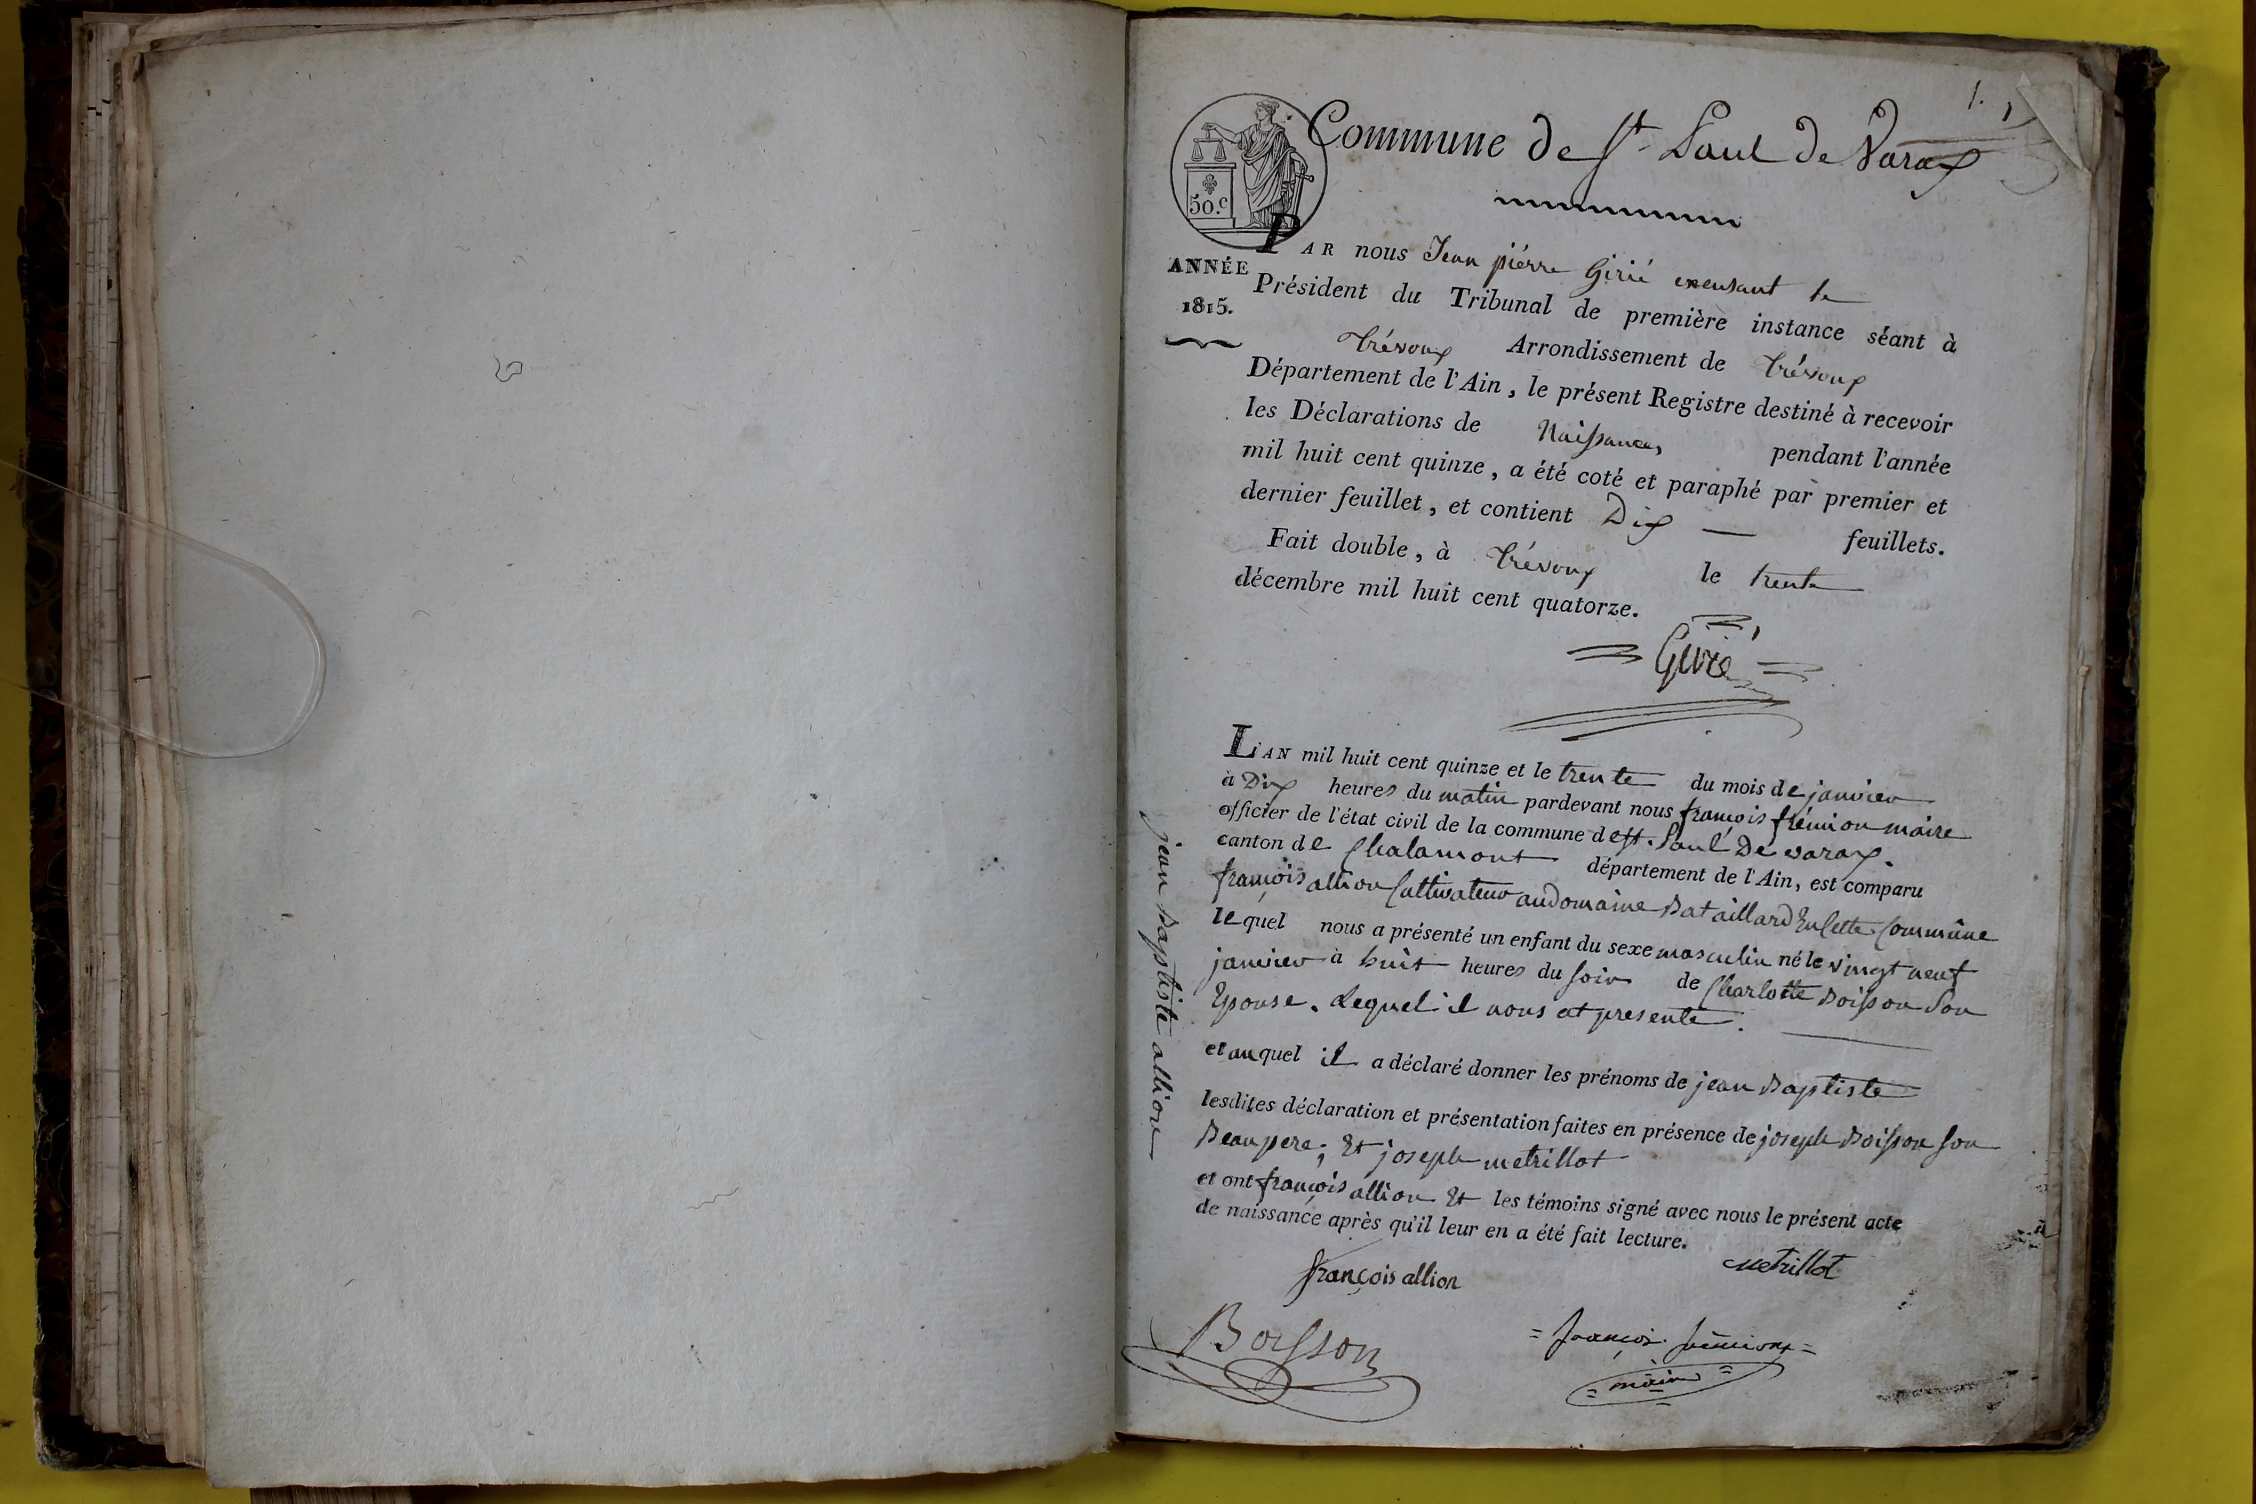 1.
1
Commune de St Paul de Varax
50.c
ANNÉE
1815.
PAR nous Jean piérre Girié exersant le
Président du Tribunal de première instance séant à
trévoux Arrondissement de trévoux
Département de l'Ain, le présent Registre destiné à recevoir
les Déclarations de Naissances pendant l'année
mil huit cent quinze, a été coté et paraphé par premier et
dernier feuillet, et contient Dix feuillets.
Fait double, à trévoux le trente
décembre mil huit cent quatorze.
Girié
L'AN mil huit cent quinze et le trente du mois de janvier
à Dix heures du matin pardevant nous françois frémion maire
officier de l'état civil de la commune de st. Paul De varax.
canton de Chalamont département de l'Ain, est comparu
françois allion Cultivateur au domaine Bataillard En Cette Commune
lequel nous a présenté un enfant du sexe masculin né le vingt neuf
janvier à huit heures du soir de Charlotte Boisson Son
Epouse. Lequel il nous at presenté.
et auquel il a déclaré donner les prénoms de jean Baptiste
lesdites déclaration et présentation faites en présence de joseph Boisson son
Beaupere; Et joseph metrillot
et ont françois allion Et les témoins signé avec nous le présent acte
de naissance après qu'il leur en a été fait lecture.
jean Baptiste allion
françois allion
metrillot
Boisson
= françois. frémion =
= maire =